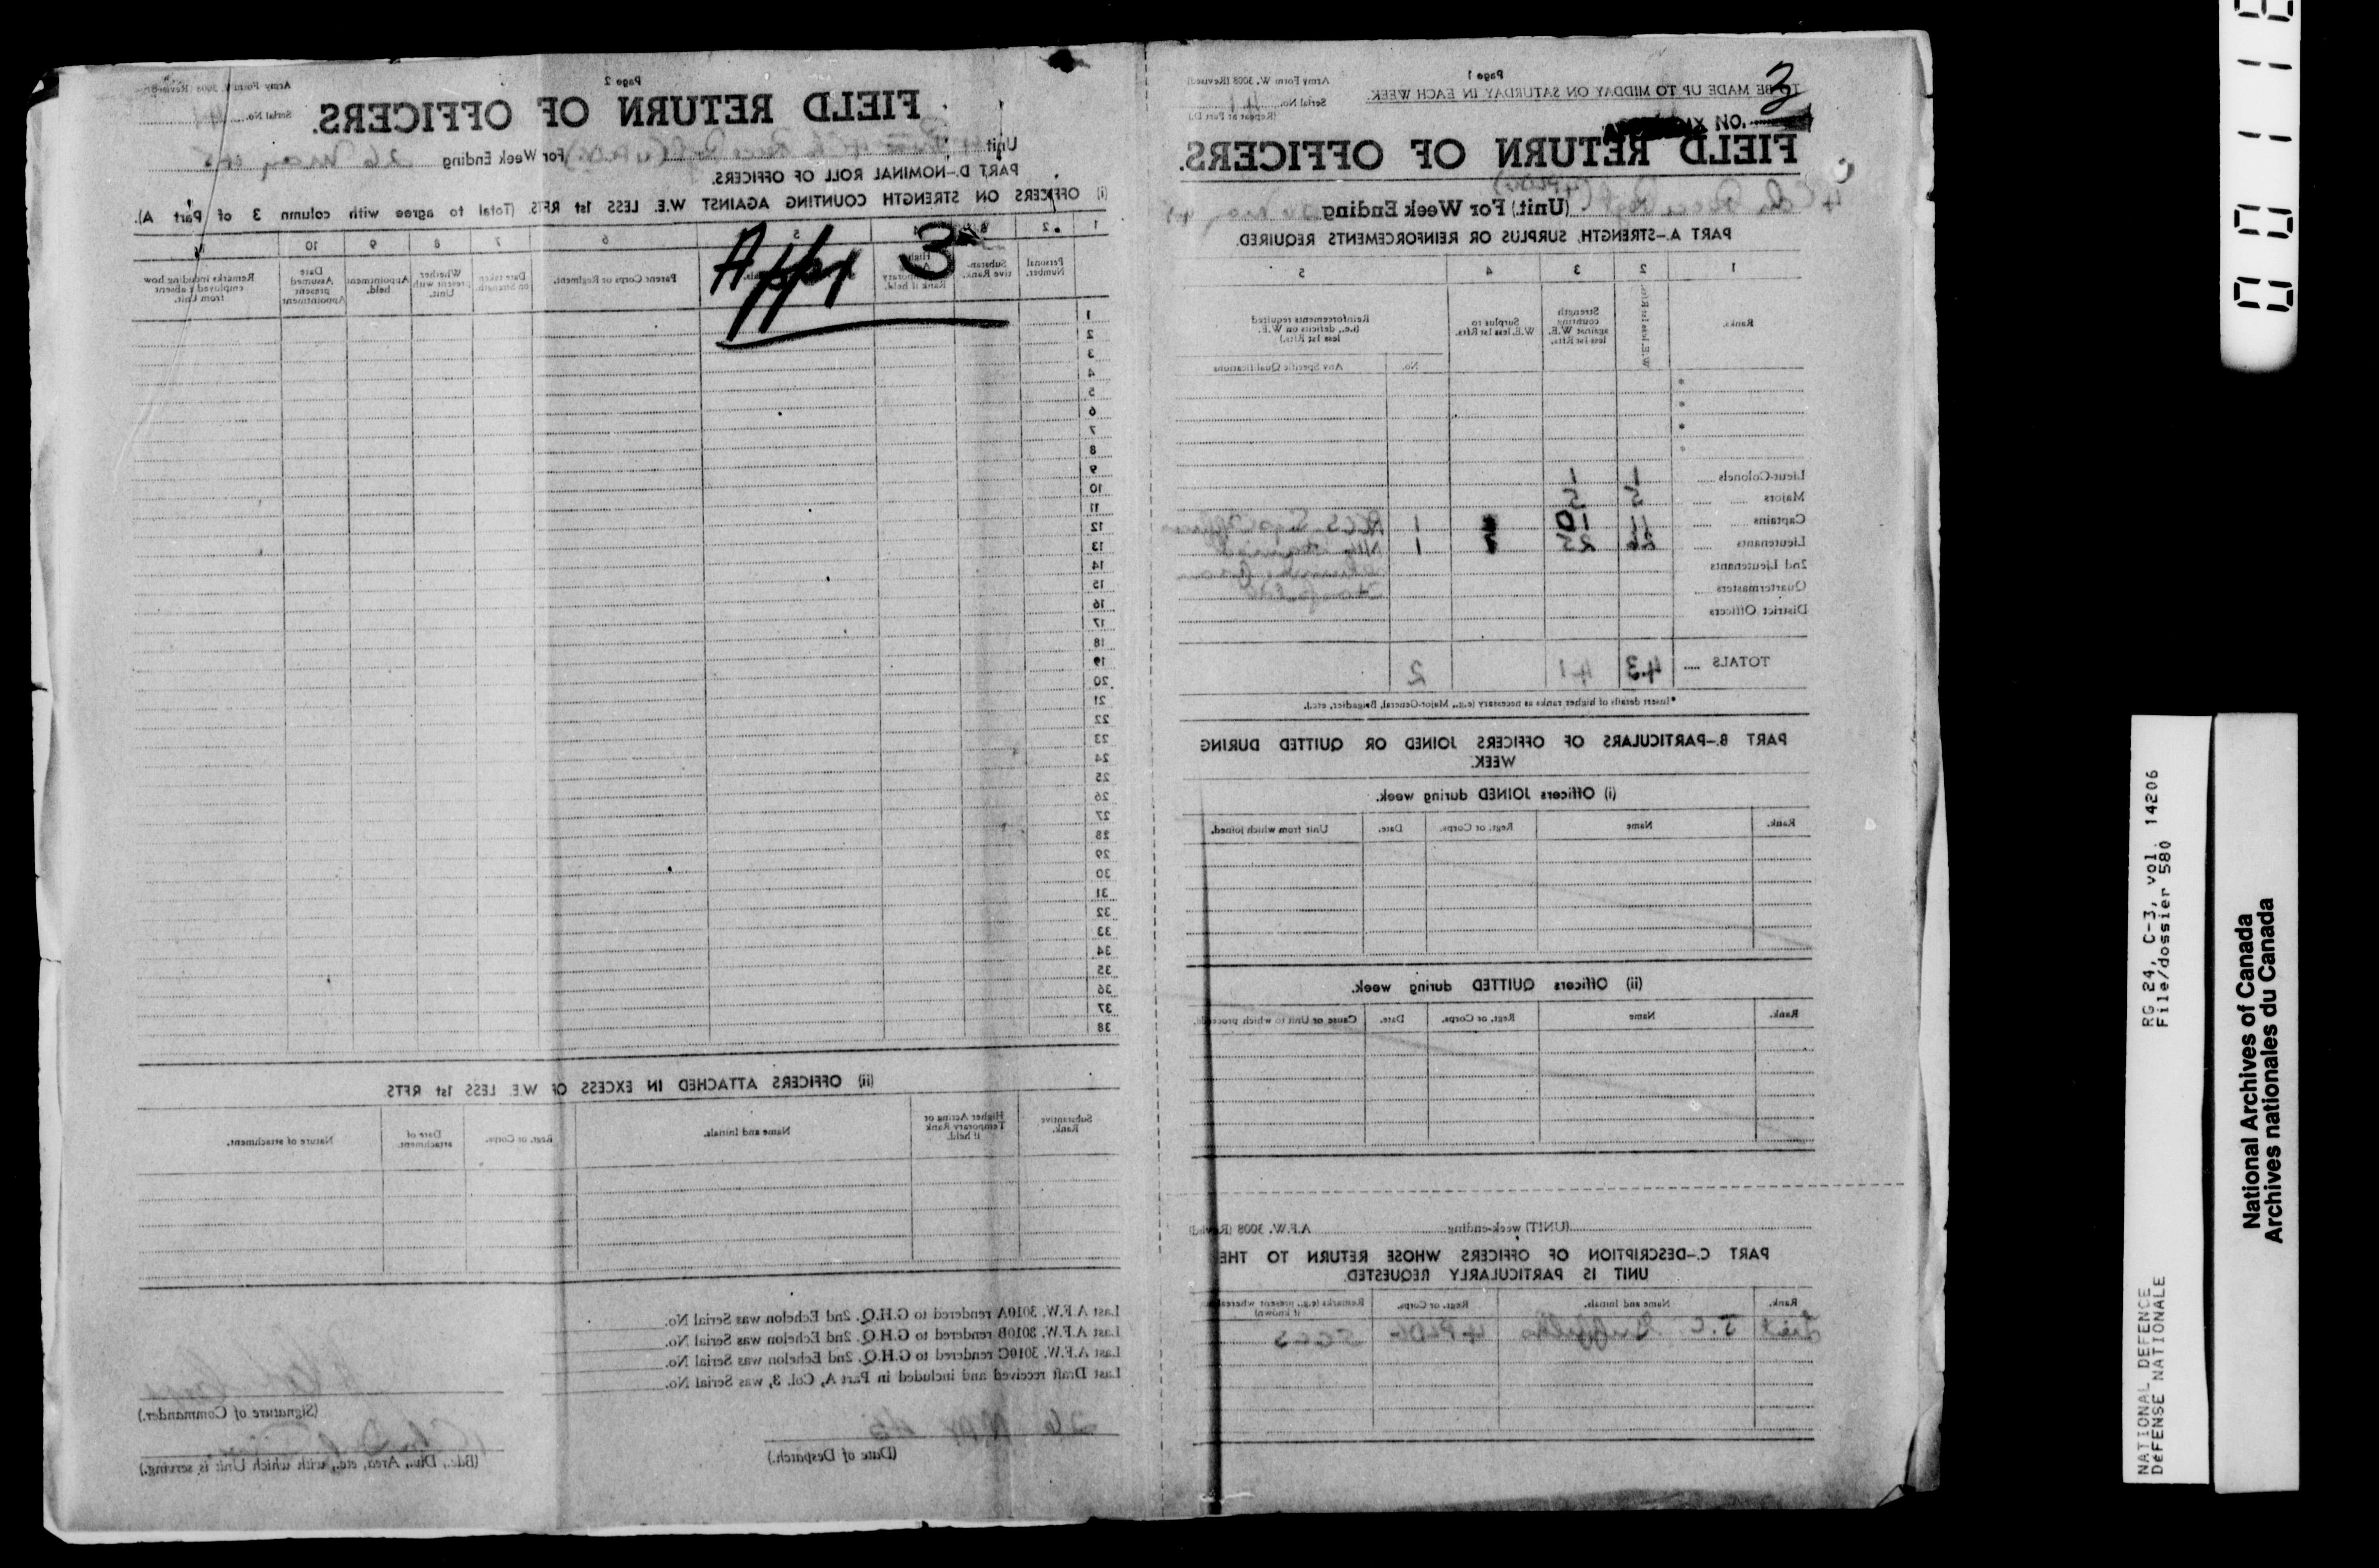 Page 2
Army Form W. 3008 (Revised)
FIELD RETURN OF OFFICERS.
Serial No. 41
Unit
For Week Ending 26 May 45
PART D.—NOMINAL ROLL OF OFFICERS.
(i) OFFICERS ON STRENGTH COUNTING AGAINST W.E. LESS 1st RFTS. (Total to agree with column 3 of Part A).
1 2 3 4 5 6 7 8 9 10 11
Personal Number.
Substantive Rank.
Rank if held.
Parent Corps or Regiment.
Date taken on Strength.
Whether present with Unit.
Appointment held.
Date Assumed present Appointment
Remarks including how employed if absent from Unit.
Appx 3
1
2
3
4
5
6
7
8
9
10
11
12
13
14
15
16
17
18
19
20
21
22
23
24
25
26
27
28
29
30
31
32
33
34
35
36
37
38
(ii) OFFICERS ATTACHED IN EXCESS OF W.E. LESS 1st RFTS
Substantive Rank.
Higher Acting or Temporary Rank if held.
Name and Initials.
Regt. or Corps.
Date of attachment.
Nature of attachment.
Last A.F.W. 3010A rendered to G.H.Q. 2nd Echelon was Serial No.
Last A.F.W. 3010B rendered to G.H.Q. 2nd Echelon was Serial No.
Last A.F.W. 3010C rendered to G.H.Q. 2nd Echelon was Serial No.
Last Draft received and included in Part A, Col. 3, was Serial No.
(Signature of Commander.)
26 May 45
(Date of Despatch.)
(Bde., Div., Area, etc., with which Unit is serving.)
Page 1
Army Form W. 3008 (Revised)
TO BE MADE UP TO MIDDAY ON SATURDAY IN EACH WEEK.
3
Serial No. 41
(Repeat at Part D.)
NO.
FIELD RETURN OF OFFICERS.
4 Cdn Recce Regt (4 PLDG) (Unit.) For Week Ending 26 May 45
PART A.—STRENGTH, SURPLUS OR REINFORCEMENTS REQUIRED.
1 2 3 4 5
Ranks.
W.E. less 1st Rfts.
Strength counting against W.E. less 1st Rfts.
Surplus to W.E. less 1st Rfts.
Reinforcements required (i.e., deficits on W.E. less 1st Rfts.)
No.
Any Specific Qualifications
*
*
*
*
Lieut-Colonels 1 1
Majors 5 5
Captains 11 10 1 RCCS
Lieutenants 26 25 1
2nd Lieutenants
Quartermasters
District Officers
TOTALS 43 41 2
*Insert details of higher ranks as necessary (e.g., Major-General, Brigadier, etc.).
PART B.—PARTICULARS OF OFFICERS JOINED OR QUITTED DURING WEEK.
(i) Officers JOINED during week.
Rank. Name Regt. or Corps. Date. Unit from which joined.
(ii) Officers QUITTED during week.
Rank. Name Regt. or Corps. Date. Cause or Unit to which proceeded.
(UNIT) week-ending A.F.W. 3008 (Revised)
PART C.—DESCRIPTION OF OFFICERS WHOSE RETURN TO THE
UNIT IS PARTICULARLY REQUESTED.
Rank. Name and Initials. Regt. or Corps. Remarks (e.g., present whereabouts if known)
Lieut J.C. Griffiths 4 PLDG
NATIONAL DEFENCE
DéFENSE NATIONALE
RG 24, C-3, vol. 14206
File/dossier 580
National Archives of Canada
Archives nationales du Canada